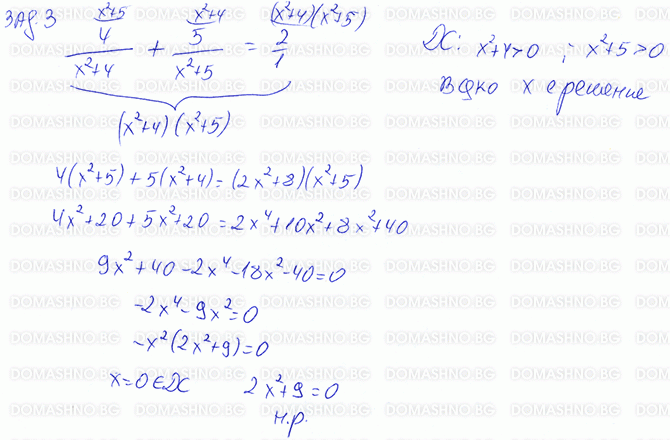 зад. 3
x²+5/ 4/(x²+4) + x²+4/ 5/(x²+5) = (x²+4)(x²+5)/ 2/1
ДС: x²+4>0 ; x²+5>0
Всяко x е решение
(x²+4)(x²+5)
4(x²+5)+5(x²+4)=(2x²+8)(x²+5)
4x²+20+5x²+20=2x⁴+10x²+8x²+40
9x²+40-2x⁴-18x²-40=0
-2x⁴-9x²=0
-x²(2x²+9)=0
x=0∈ДС 2x²+9=0
н.р.
DOMASHNO.BG